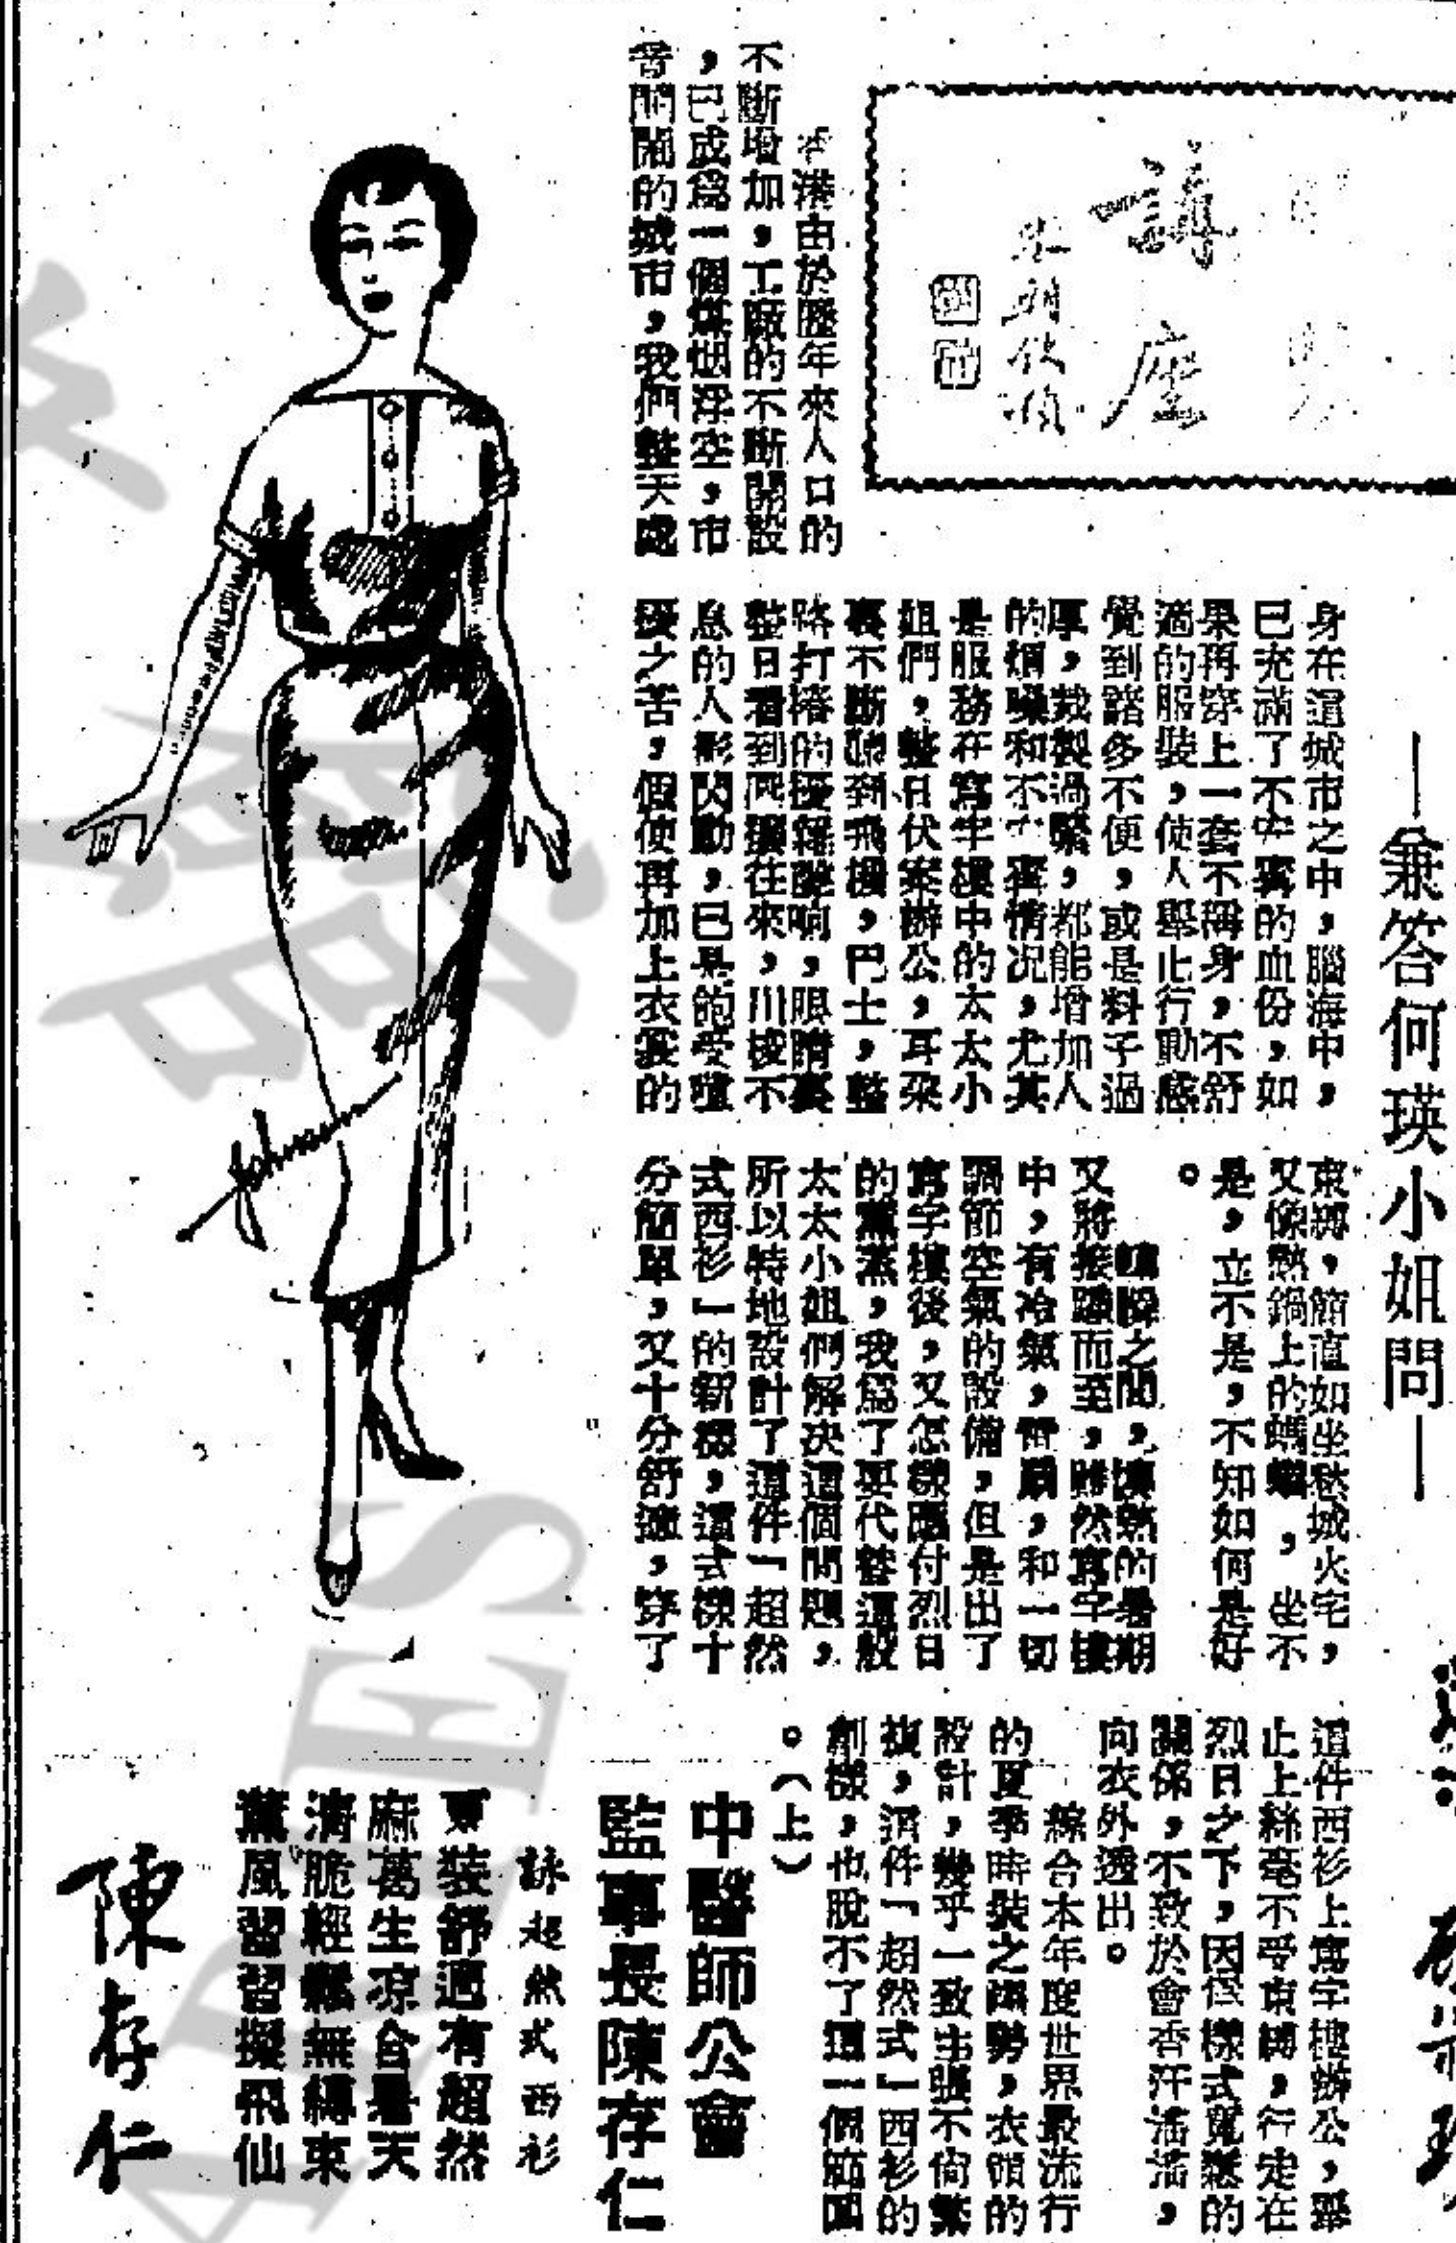 講座
—兼答何瑛小姐問—
香港由於歷年來人口的
不斷增加，工廠的不斷開設
，已成爲一個煤烟浮空，市
的城市，我們整天處
身在這城市之中，腦海中，
已充滿了不安寧的血份，如
果再穿上一套不稱身，不舒
適的服裝，使人舉止行動感
覺到諸多不便，或是料子過
厚，裁製過緊，都能增加人
的煩噪和不安寧情况，尤其
是服務在寫字樓中的太太小
姐們，整日伏案辦公，耳朶
裏不斷聽到飛機，巴士，整
路打樁的擾雜聲响，眼睛裏
整日看到熙攘往來，川梭不
息的人影閃動，已是飽受喧
擾之苦，假使再加上衣裳的
束縛，簡直如坐愁城火宅，
又像熱鍋上的螞蟻，坐不
是，立不是，不知如何是好
。
轉瞬之間，炎熱的暑期
又將接踵而至，雖然寫字樓
中，有冷氣，電扇，和一切
調節空氣的設備，但是出了
寫字樓後，又怎樣應付烈日
的薰蒸，我爲了要代替這般
太太小姐們解决這個問題，
所以特地設計了這件「超然
式西衫」的新樣，這式樣十
分簡單，又十分舒適，穿了
這件西衫上寫字樓辦公，舉
止上絲毫不受束縛，行走在
烈日之下，因爲樣式寬鬆的
關係，不致於會香汗涔涔，
向衣外透出。
綜合本年度世界最流行
的夏季時裝之趨勢，衣領的
設計，幾乎一致主張不尙繁
複，這件「超然式」西衫的
創樣，也脫不了這一個範圍
。（上）
中醫師公會
監事長陳存仁
詠超然式西衫
夏裝舒適有超然
麻葛生凉合暑天
淸脆輕鬆無縛束
薰風習習擬飛仙
陳存仁